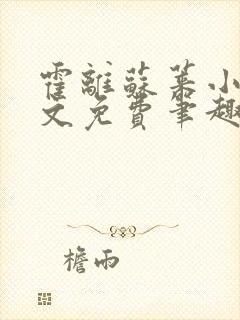 霍離蘇慕小
文免費筆趣
檐雨